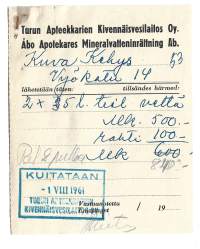 Turun Apteekkarien Kivennäisvesilaitos Oy.
Åbo Apotekares Mineralvatteninrättning Ab.
Kuva Kehys 53
Vyökatu 14
lähetetään täten: tillsändes härmed:
2 x 35 l. teil vettä
Mk. 500.-
rahti 100.-
Mk 600.-
840.-
KUITATAAN
-1 VIII 1961
TURUN APTEEKKARIEN
KIVENNÄISVESILAITOS
Vastaanotettu
/ 19